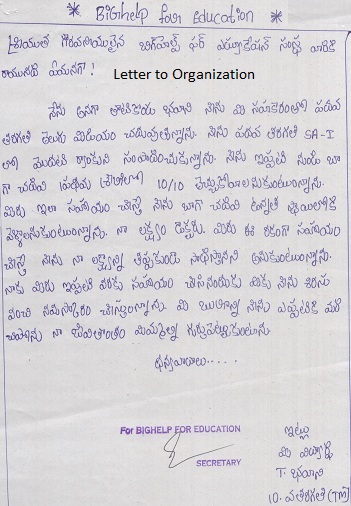 * BIGhelp for Education *
ప్రియతమ గౌరవనీయులైన బిగ్‌హెల్ప్ ఫర్ ఎడ్యుకేషన్ సంస్థ వారికి
రాయునది ఏమనగా!
Letter to Organization
నేను అనగా తాటికాయ భవాని నేను మీ సహకారంతో పదవ
తరగతి తెలుగు మీడియం చదువుతున్నాను. నేను పదవ తరగతి SA-I
లో మొదటి ర్యాంకుని సంపాదించుకున్నాను. నేను ఇప్పటి నుండి బా
గా చదివి 10/10 తెచ్చుకోవాలనుకుంటున్నాను.
మీరు ఇలా సహాయం చేస్తే నేను బాగా చదివి ఉన్నత స్థాయిలోకి
వెళ్ళాలనుకుంటున్నాను. నా లక్ష్యం డాక్టరు. మీరు ఈ రకంగా సహాయం
చేస్తే నేను నా లక్ష్యాన్ని తప్పకుండా సాధిస్తానని అనుకుంటున్నాను.
నాకు మీరు ఇప్పటి వరకు సహాయం చేసినందుకు మీకు నేను శిరసు
వంచి నమస్కారం చేస్తున్నాను. మీ ఋణాన్ని నేను ఎప్పటికి మరి
చిపోను నా జీవితాంతం మిమ్మల్ని గుర్తుపెట్టుకుంటాను.
ధన్యవాదాలు.....
For BIGHELP FOR EDUCATION
SECRETARY
ఇట్లు
మీ విద్యార్థి
T. భవాని
10. వ తరగతి (TM)